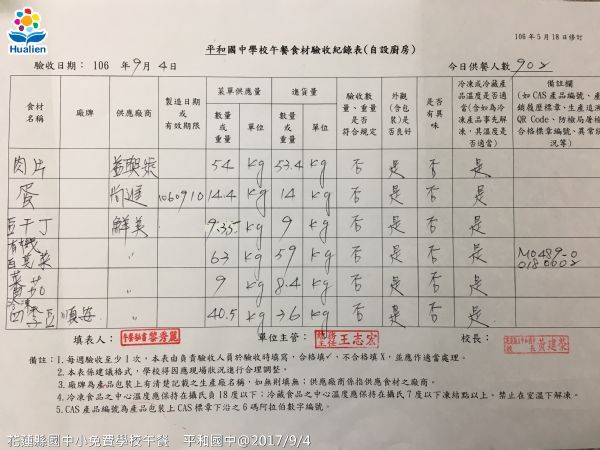 Hualien
106年5月18日修訂
平和國中學校午餐食材驗收紀錄表(自設廚房)
驗收日期：106年9月4日
今日供餐人數 902
食材名稱 廠牌 供應廠商 製造日期或有效期限 菜單供應量 數量或重量 單位 進貨量 數量或重量 單位 驗收數量、重量是否符合規定 外觀(含包裝)是否良好 是否有異味 冷凍或冷藏產品溫度是否適當(含如為冷凍產品事先解凍，其溫度是否適當) 備註欄
肉片 54 kg 53.4 kg 否 是 否 是
蛋 1060910 14.4 kg 14 kg 否 是 否 是
豆干丁 鮮美 9.35 kg 9 kg 否 是 否 是
有機 菜 〃 63 kg 59 kg 否 是 否 是
蕃茄 〃 9 kg 8.4 kg 否 是 否 是
四季豆 順安 40.5 kg 36 kg 否 是 否 是
填表人： 黎秀麗 單位主管： 王志宏 校長： 黃建榮
備註：1.每週驗收至少1次，本表由負責驗收人員於驗收時填寫，合格填✓，不合格填X，並應作適當處理。
2.本表係建議格式，學校得因應現場狀況進行合理調整。
3.廠牌為產品包裝上有清楚記載之生產廠名稱，如無則填無；供應廠商係指供應食材之廠商。
4.冷凍食品之中心溫度應保持在攝氏負18度以下；冷藏食品之中心溫度應保持在攝氏7度以下凍結點以上。禁止在室溫下解凍。
5.CAS產品編號為產品包裝上CAS標章下沿之6碼阿拉伯數字編號。
花蓮縣國中小免費學校午餐 平和國中@2017/9/4